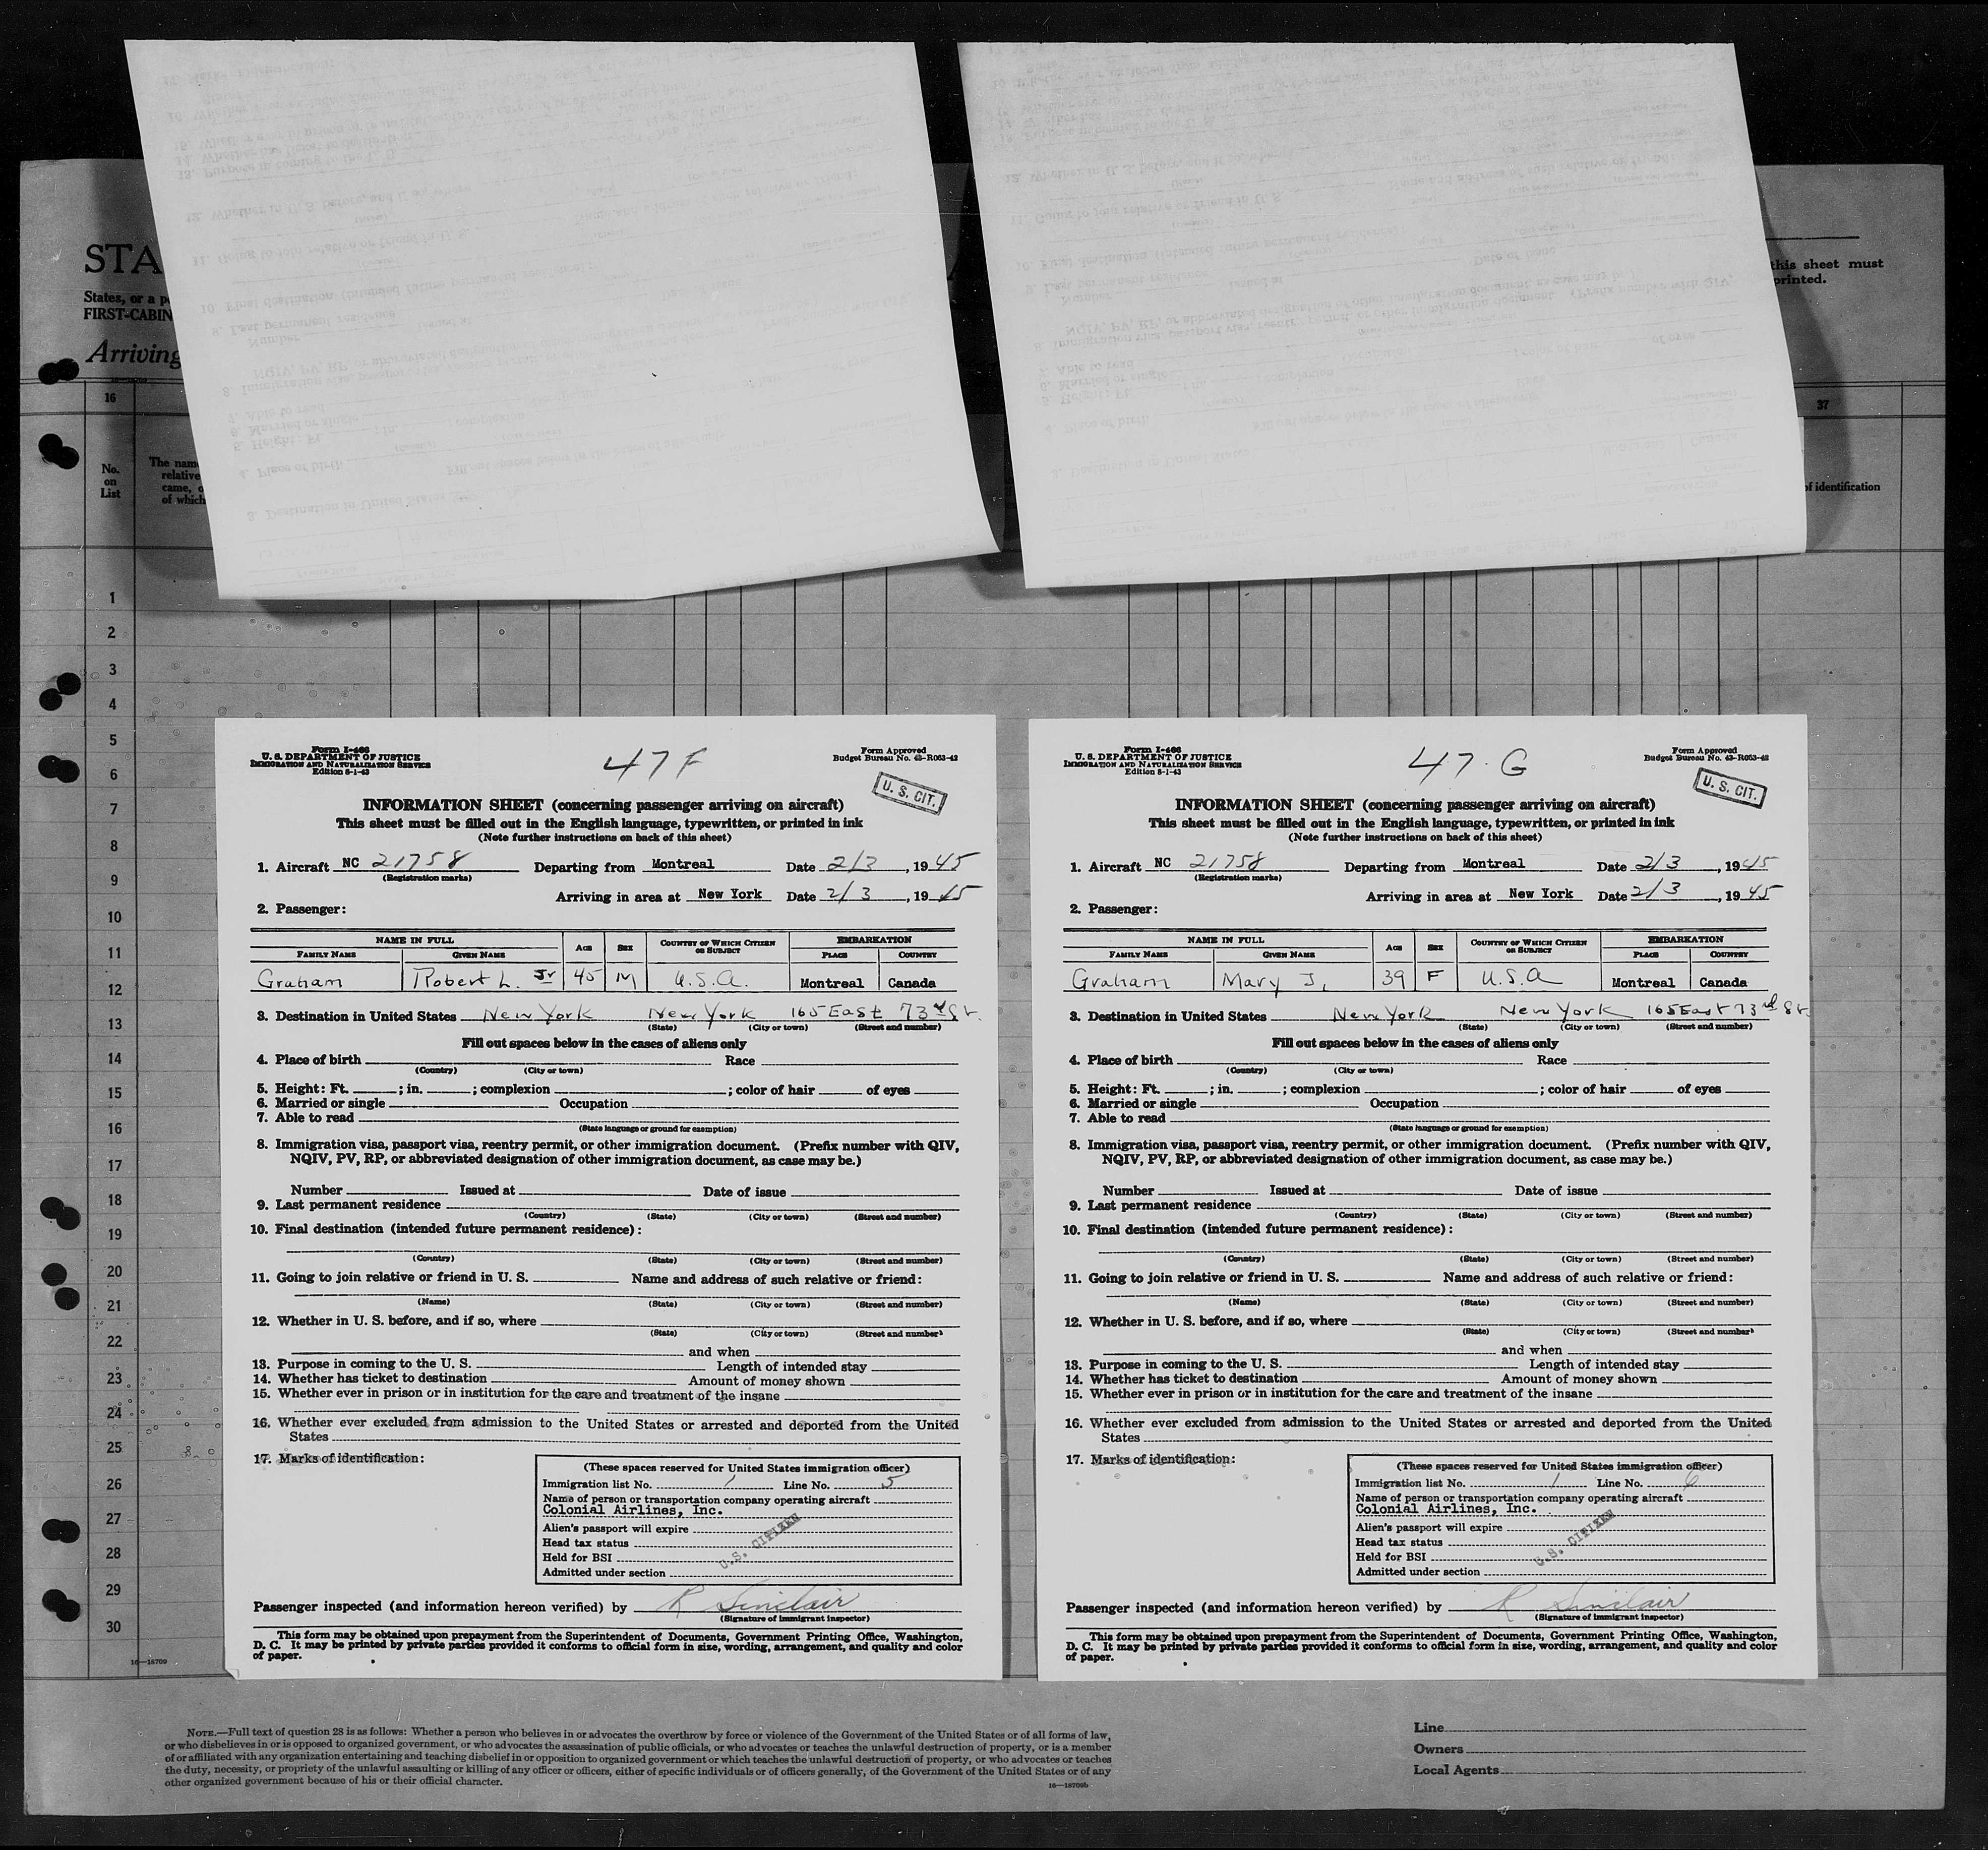 STA
States, or a p
FIRST-CABIN
Arriving
this sheet must
printed.
16
37
No.
on
List
The nam
relative
came, o
of which
of identification
1
2
3
4
5
6
7
8
9
10
11
12
13
14
15
16
17
18
19
20
21
22
23
24
25
26
27
28
29
30
16—18709
Form I-466
U. S. DEPARTMENT OF JUSTICE
IMMIGRATION AND NATURALIZATION SERVICE
Edition 8-1-43
47 F
Form Approved
Budget Bureau No. 43-R063-42
U. S. CIT.
INFORMATION SHEET (concerning passenger arriving on aircraft)
This sheet must be filled out in the English language, typewritten, or printed in ink
(Note further instructions on back of this sheet)
1. Aircraft NC 21758 Departing from Montreal Date 2/3, 1945
(Registration marks)
Arriving in area at New York Date 2/3, 1945
2. Passenger:
NAME IN FULL AGE SEX COUNTRY OF WHICH CITIZEN OR SUBJECT EMBARKATION
FAMILY NAME GIVEN NAME PLACE COUNTRY
Graham Robert L. Jr 45 M U.S.A. Montreal Canada
3. Destination in United States New York New York 165 East 73rd St.
(State) (City or town) (Street and number)
Fill out spaces below in the cases of aliens only
4. Place of birth Race
(Country) (City or town)
5. Height: Ft. ; in. ; complexion ; color of hair of eyes
6. Married or single Occupation
7. Able to read
(State language or ground for exemption)
8. Immigration visa, passport visa, reentry permit, or other immigration document. (Prefix number with QIV,
NQIV, PV, RP, or abbreviated designation of other immigration document, as case may be.)
Number Issued at Date of issue
9. Last permanent residence
(Country) (State) (City or town) (Street and number)
10. Final destination (intended future permanent residence):
(Country) (State) (City or town) (Street and number)
11. Going to join relative or friend in U. S. Name and address of such relative or friend:
(Name) (State) (City or town) (Street and number)
12. Whether in U. S. before, and if so, where
(State) (City or town) (Street and number)
and when
13. Purpose in coming to the U. S. Length of intended stay
14. Whether has ticket to destination Amount of money shown
15. Whether ever in prison or in institution for the care and treatment of the insane
16. Whether ever excluded from admission to the United States or arrested and deported from the United
States
17. Marks of identification:
(These spaces reserved for United States immigration officer)
Immigration list No. 1 Line No. 5
Name of person or transportation company operating aircraft
Colonial Airlines, Inc.
Alien's passport will expire
Head tax status
Held for BSI
Admitted under section
U.S. CITIZEN
Passenger inspected (and information hereon verified) by R Sinclair
(Signature of immigrant inspector)
This form may be obtained upon prepayment from the Superintendent of Documents, Government Printing Office, Washington,
D. C. It may be printed by private parties provided it conforms to official form in size, wording, arrangement, and quality and color
of paper.
Form I-466
U. S. DEPARTMENT OF JUSTICE
IMMIGRATION AND NATURALIZATION SERVICE
Edition 8-1-43
47. G
Form Approved
Budget Bureau No. 43-R063-42
U. S. CIT.
INFORMATION SHEET (concerning passenger arriving on aircraft)
This sheet must be filled out in the English language, typewritten, or printed in ink
(Note further instructions on back of this sheet)
1. Aircraft NC 21758 Departing from Montreal Date 2/3, 1945
(Registration marks)
Arriving in area at New York Date 2/3, 1945
2. Passenger:
NAME IN FULL AGE SEX COUNTRY OF WHICH CITIZEN OR SUBJECT EMBARKATION
FAMILY NAME GIVEN NAME PLACE COUNTRY
Graham Mary J. 39 F U.S.A Montreal Canada
3. Destination in United States New York New York 165 East 73rd St.
(State) (City or town) (Street and number)
Fill out spaces below in the cases of aliens only
4. Place of birth Race
(Country) (City or town)
5. Height: Ft. ; in. ; complexion ; color of hair of eyes
6. Married or single Occupation
7. Able to read
(State language or ground for exemption)
8. Immigration visa, passport visa, reentry permit, or other immigration document. (Prefix number with QIV,
NQIV, PV, RP, or abbreviated designation of other immigration document, as case may be.)
Number Issued at Date of issue
9. Last permanent residence
(Country) (State) (City or town) (Street and number)
10. Final destination (intended future permanent residence):
(Country) (State) (City or town) (Street and number)
11. Going to join relative or friend in U. S. Name and address of such relative or friend:
(Name) (State) (City or town) (Street and number)
12. Whether in U. S. before, and if so, where
(State) (City or town) (Street and number)
and when
13. Purpose in coming to the U. S. Length of intended stay
14. Whether has ticket to destination Amount of money shown
15. Whether ever in prison or in institution for the care and treatment of the insane
16. Whether ever excluded from admission to the United States or arrested and deported from the United
States
17. Marks of identification:
(These spaces reserved for United States immigration officer)
Immigration list No. 1 Line No. 6
Name of person or transportation company operating aircraft
Colonial Airlines, Inc.
Alien's passport will expire
Head tax status
Held for BSI
Admitted under section
U.S. CITIZEN
Passenger inspected (and information hereon verified) by R Sinclair
(Signature of immigrant inspector)
This form may be obtained upon prepayment from the Superintendent of Documents, Government Printing Office, Washington,
D. C. It may be printed by private parties provided it conforms to official form in size, wording, arrangement, and quality and color
of paper.
NOTE.—Full text of question 28 is as follows: Whether a person who believes in or advocates the overthrow by force or violence of the Government of the United States or of all forms of law,
or who disbelieves in or is opposed to organized government, or who advocates the assassination of public officials, or who advocates or teaches the unlawful destruction of property, or is a member
of or affiliated with any organization entertaining and teaching disbelief in or opposition to organized government or which teaches the unlawful destruction of property, or who advocates or teaches
the duty, necessity, or propriety of the unlawful assaulting or killing of any officer or officers, either of specific individuals or of officers generally, of the Government of the United States or of any
other organized government because of his or their official character.
16—18709b
Line
Owners
Local Agents